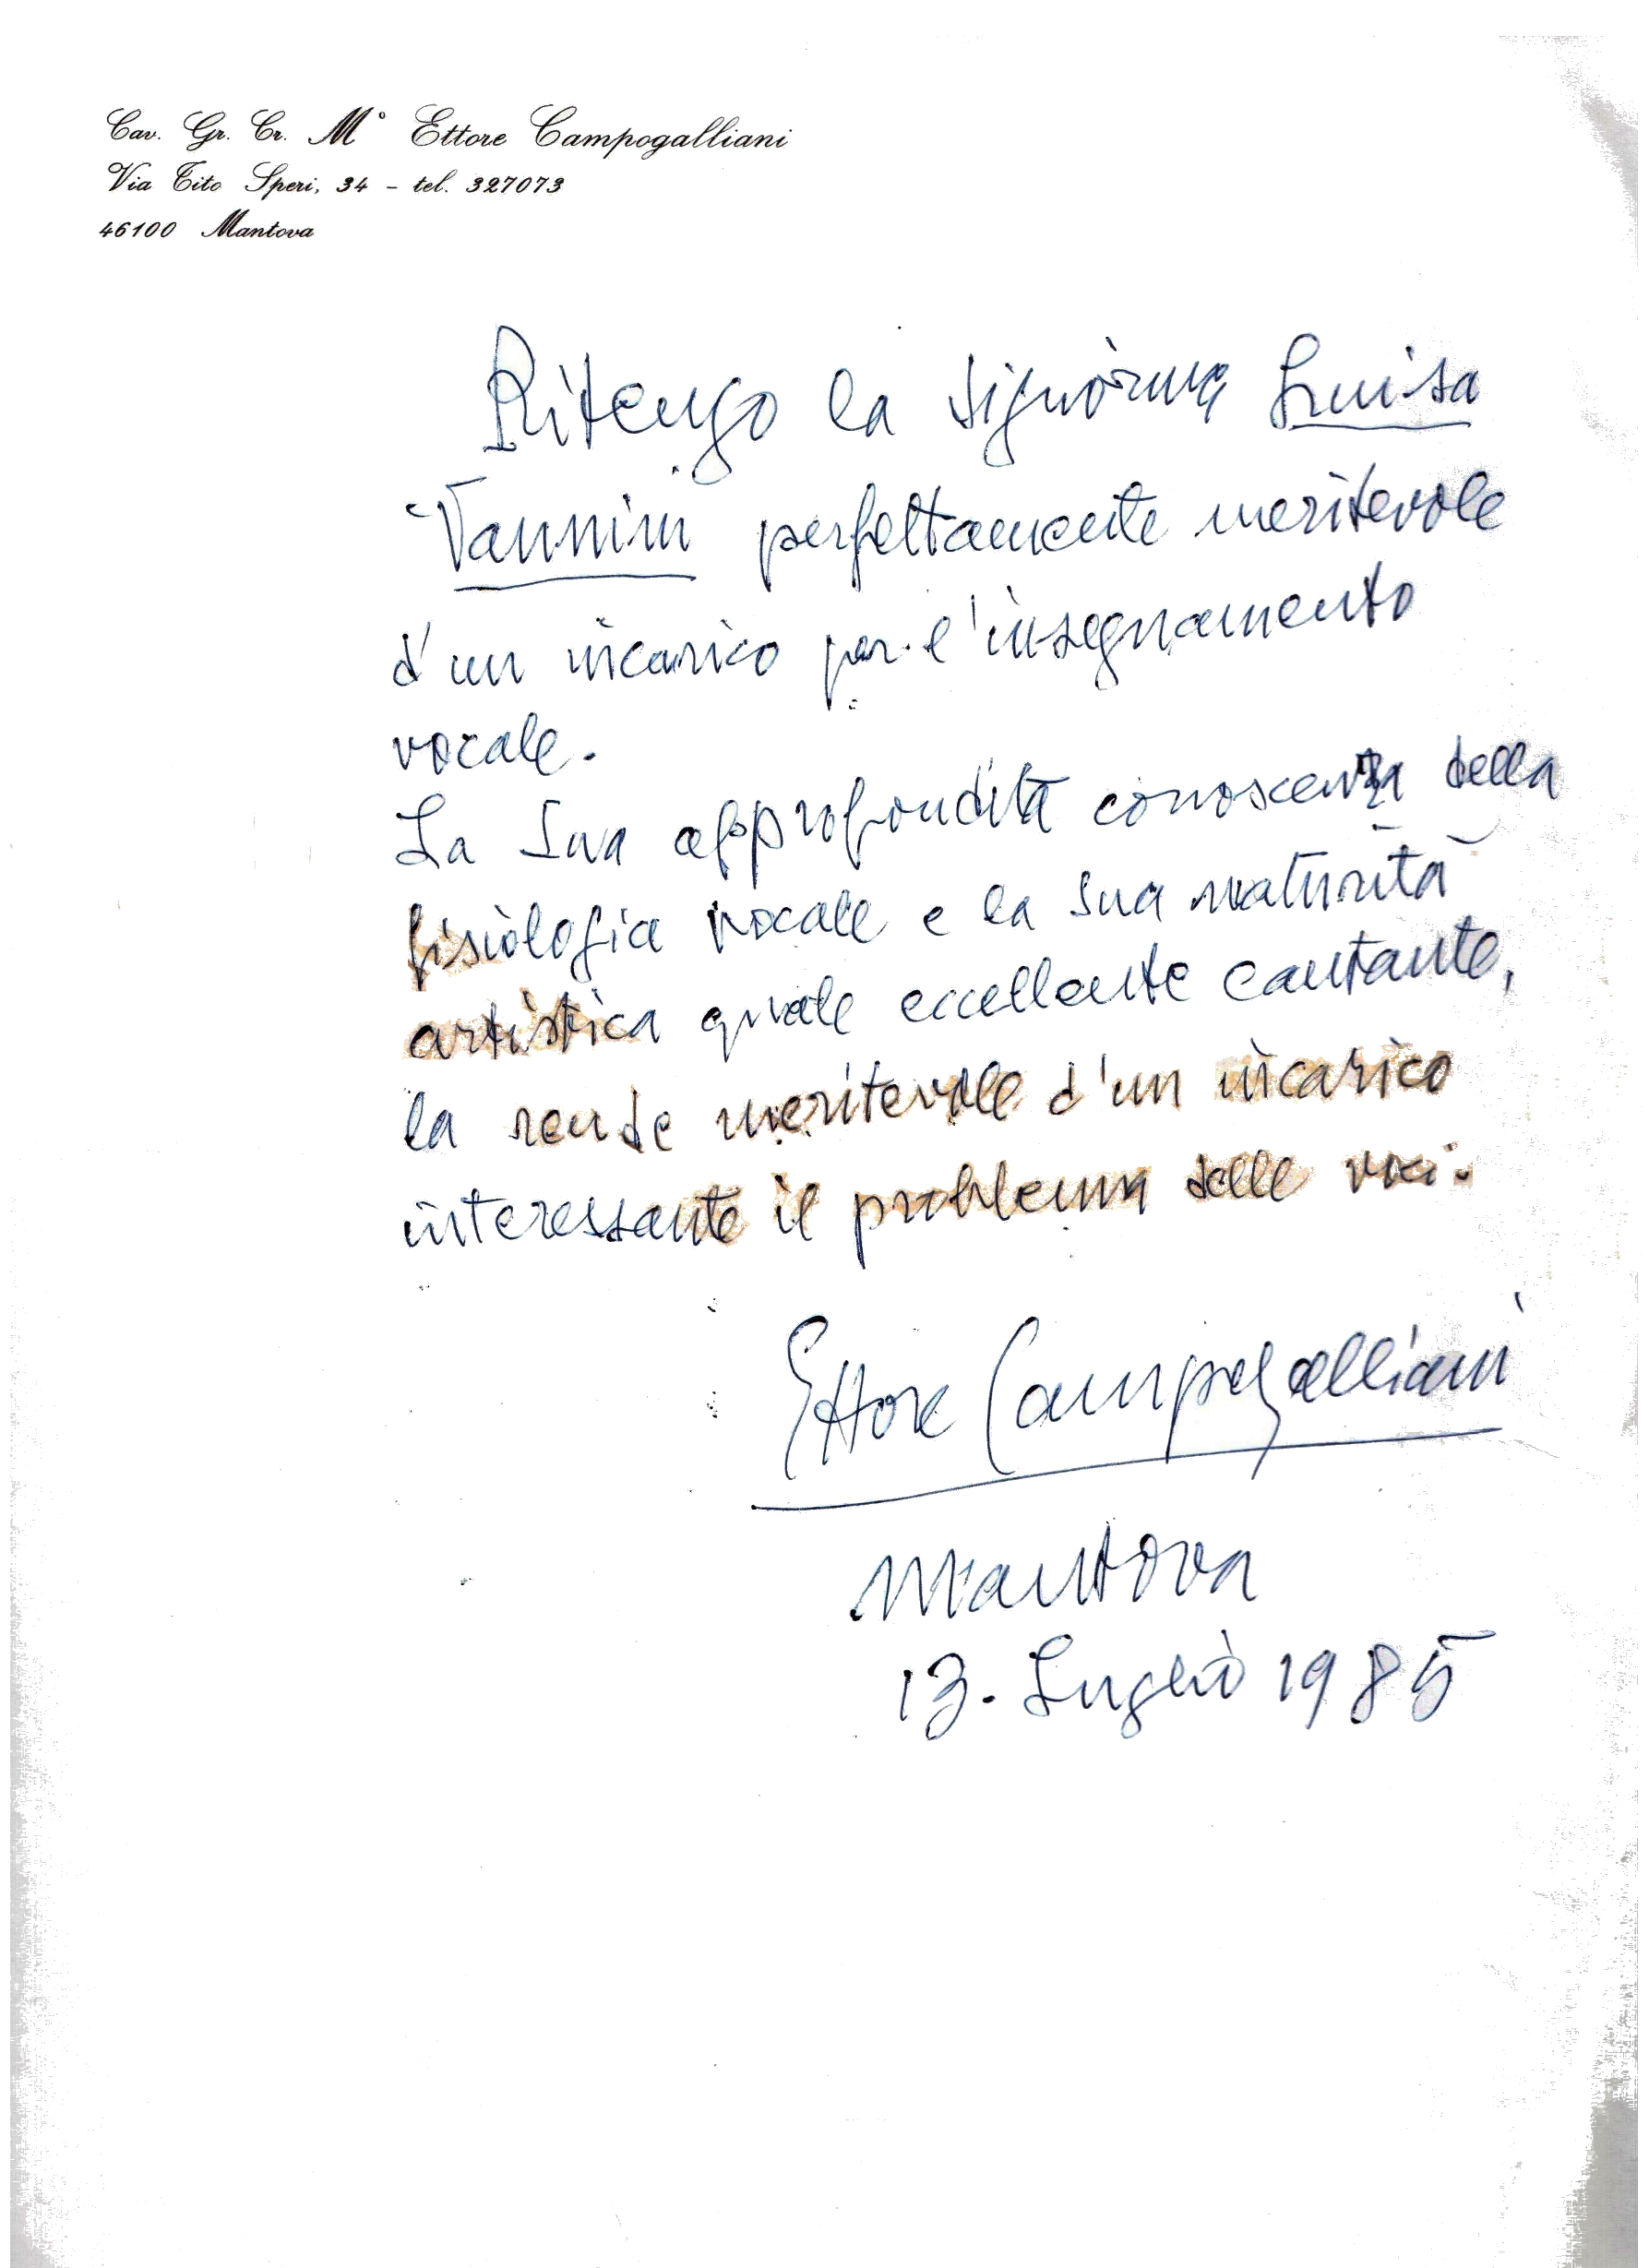 Cav. Gr. Cr. M° Ettore Campogalliani
Via Tito Speri, 34 - tel. 327073
46100 Mantova
Ritengo la signorina Luisa
Vannini perfettamente meritevole
d'un incarico per l'insegnamento
vocale.
La Sua approfondita conoscenza della
fisiologia vocale e la sua maturità
artistica quale eccellente cantante,
la rende meritevole d'un incarico
interessante il problema delle voci.
Ettore Campogalliani
Mantova
13. Luglio 1985